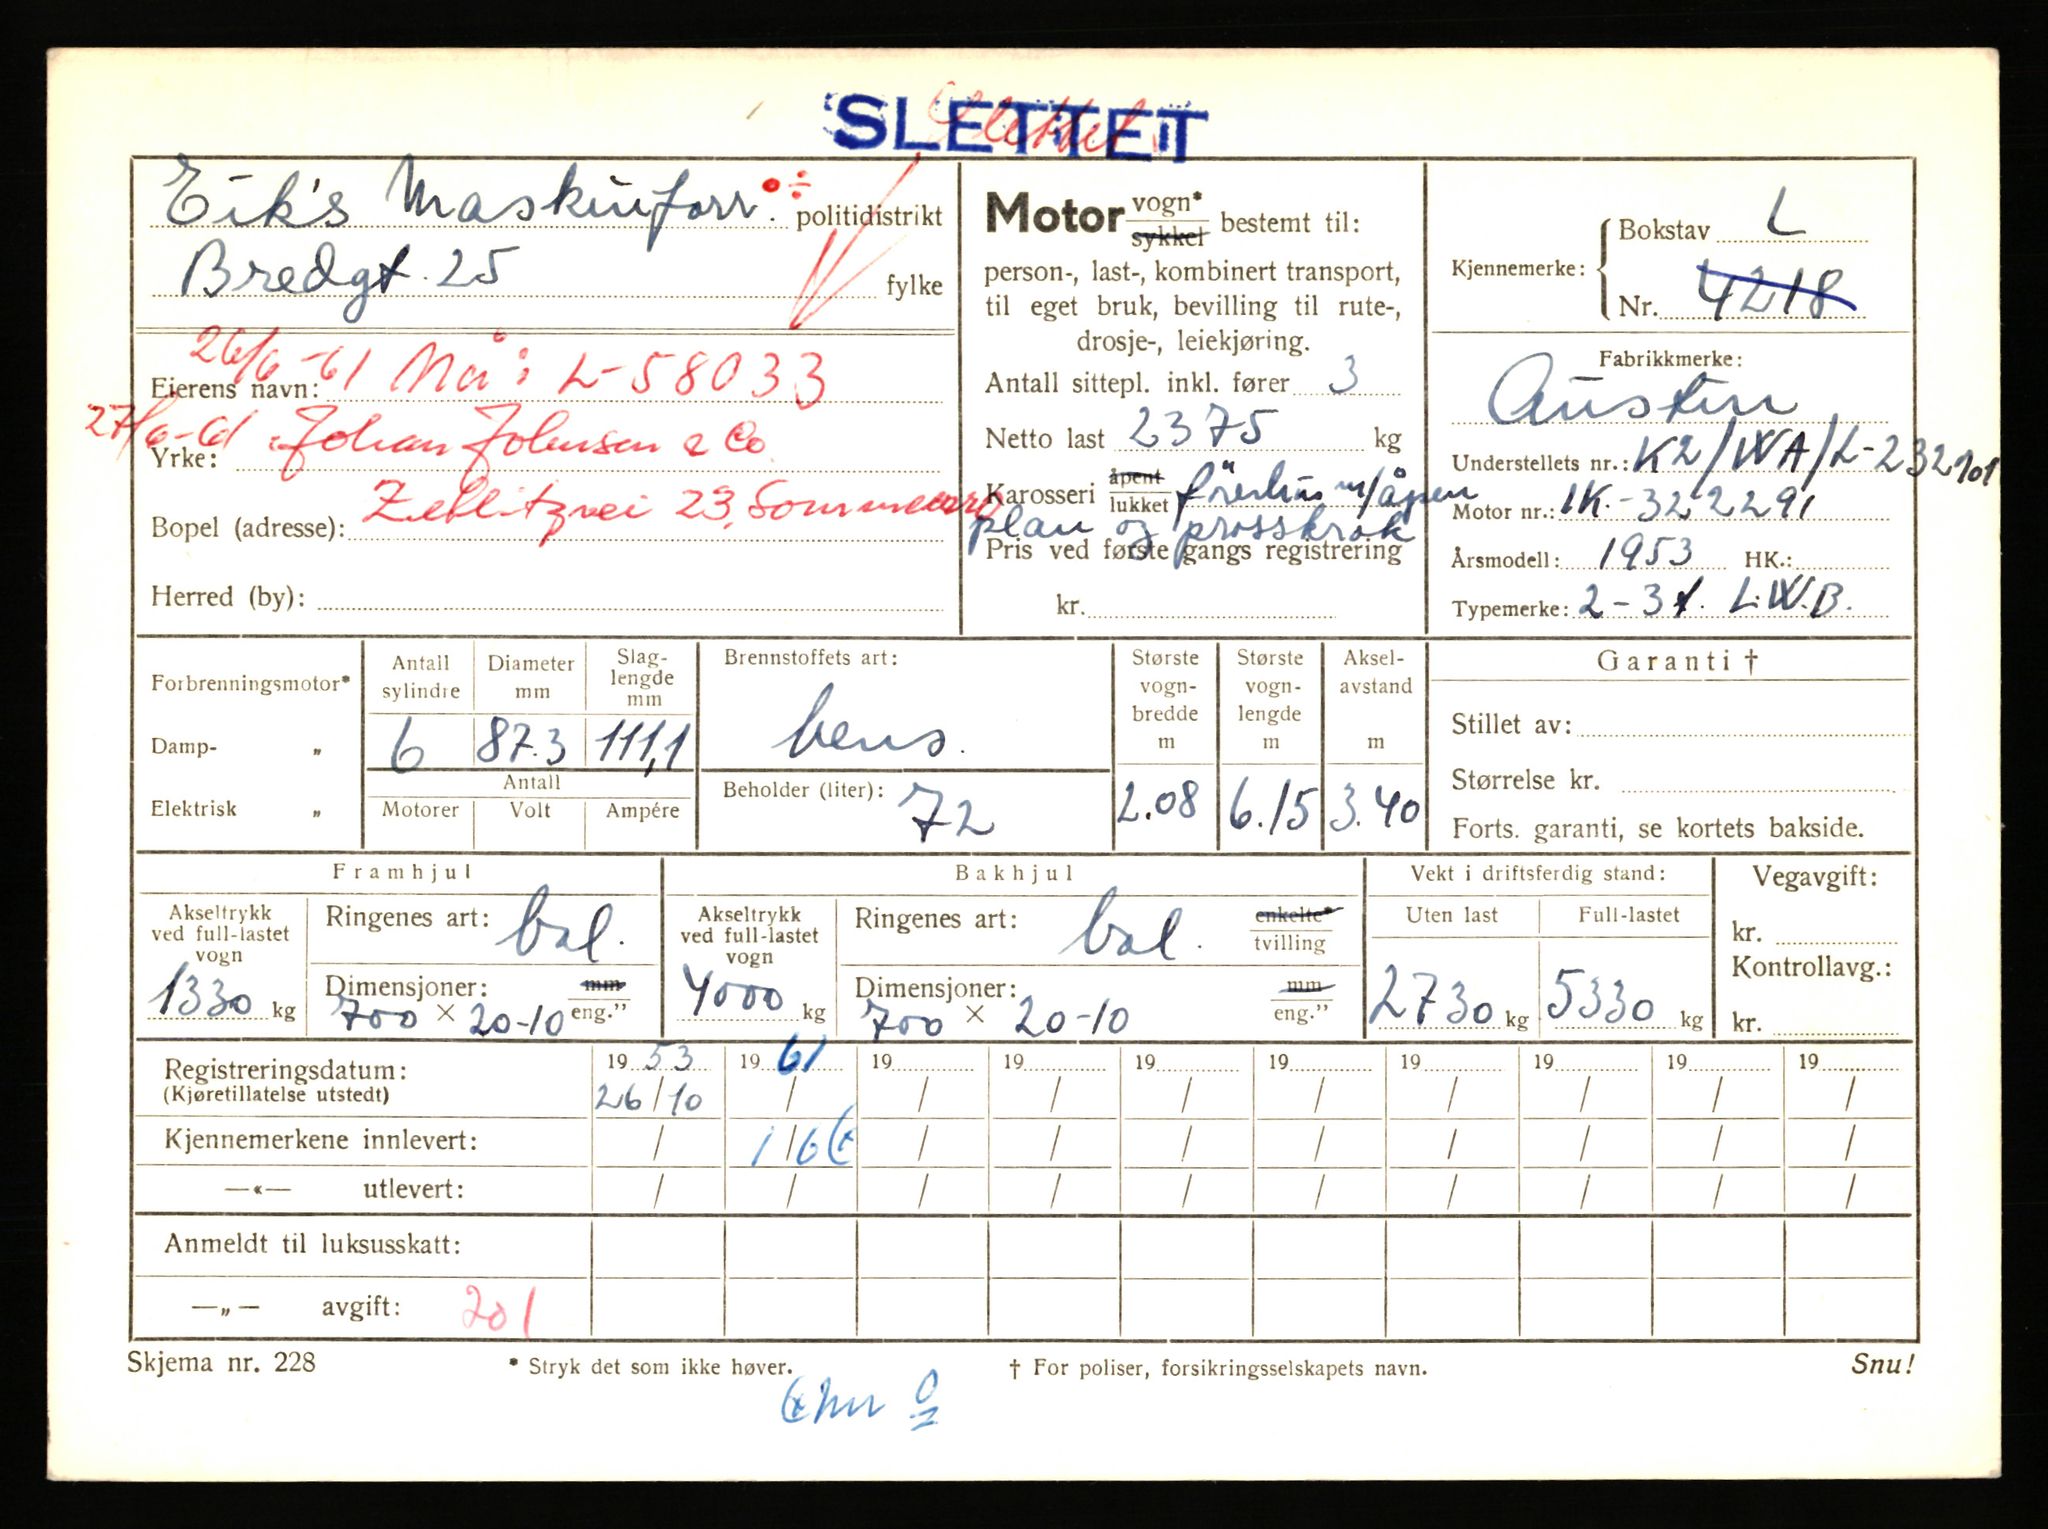 SLETTET
Slettet
Eik's Maskinforr. ÷ politidistrikt
Bredgt. 25 fylke
26/6-61 Nå: L-58033
Eierens navn:
27/6-61 Johan Johnsen & Co
Yrke:
23, Sømmevågen
Bopel (adresse):
Herred (by):
Motor vogn* sykkel bestemt til:
person-, last-, kombinert transport,
til eget bruk, bevilling til rute-,
drosje-, leiekjøring.
Antall sittepl. inkl. fører 3
Netto last 2375 kg
Karosseri åpent lukket førerhus m/åpen
plan og
Pris ved første gangs registrering
kr.
Kjennemerke: Bokstav L
Nr. 4218
Fabrikkmerke:
Austin
Understellets nr.: K2/WA/L-232101
Motor nr.: 1K-322291
Årsmodell: 1953 HK.:
Typemerke: 2-3t. L.W.B.
Forbrenningsmotor*
Damp- „
Elektrisk „
Antall sylindre 6
Diameter mm 87.3
Slag-lengde mm 111,1
Antall
Motorer Volt Ampére
Brennstoffets art:
bens.
Beholder (liter): 72
Største vogn-bredde m 2.08
Største vogn-lengde m 6.15
Aksel-avstand m 3.40
Garanti †
Stillet av:
Størrelse kr.
Forts. garanti, se kortets bakside.
Framhjul
Akseltrykk ved full-lastet vogn 1330 kg
Ringenes art: bal.
Dimensjoner: mm eng."
700 × 20-10
Bakhjul
Akseltrykk ved full-lastet vogn 4000 kg
Ringenes art: bal. enkelte* tvilling
Dimensjoner: mm eng."
700 × 20-10
Vekt i driftsferdig stand:
Uten last 2730 kg
Full-lastet 5330 kg
Vegavgift:
kr.
Kontrollavg.:
kr.
Registreringsdatum: 19 53 19 61 19 19 19 19 19 19 19 19
(Kjøretillatelse utstedt) 26/10 / / / / / / / / /
Kjennemerkene innlevert: / 1/6 / / / / / / / /
—«— utlevert: / / / / / / / / / /
Anmeldt til luksusskatt:
—„— avgift: 201
Skjema nr. 228 * Stryk det som ikke høver. † For poliser, forsikringsselskapets navn. Snu!